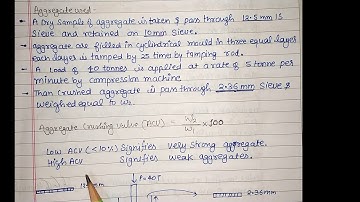 Aggregate used -
A Dry Sample of aggregate is taken & pass through 12.5mm IS
Sieve and retained on 10mm Sieve.
aggregate are filled in cylindrical mould in three equal layers
each layer is tamped by 25 time by tamping rod.
A Load of 40 tonnes is applied at a rate of 5 tonnes
per minute by compression machine
Than Crushed aggregate is pass through 2.36mm Sieve &
weighed equal to W2.
Aggregate Crushing Value (ACV) = W2/W1 × 100
Low ACV (<10%) Signifies very strong aggregate.
High ACV Signifies weak aggregates.
P=40T
2.36mm